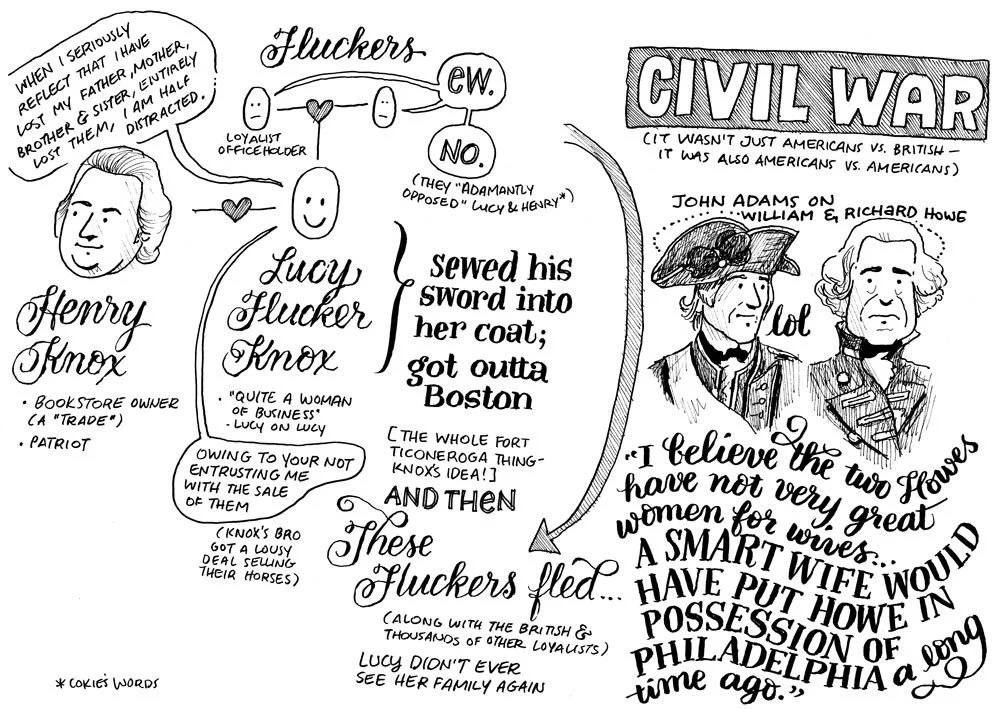 WHEN I SERIOUSLY
REFLECT THAT I HAVE
LOST MY FATHER, MOTHER,
BROTHER & SISTER, ENTIRELY
LOST THEM, I AM HALF
DISTRACTED.
Fluckers
ew.
NO.
LOYALIST
OFFICEHOLDER
(THEY "ADAMANTLY
OPPOSED" LUCY & HENRY*)
Henry
Knox
• BOOKSTORE OWNER
(A "TRADE")
• PATRIOT
Lucy
Flucker
Knox
• "QUITE A WOMAN
OF BUSINESS"
- LUCY ON LUCY
OWING TO YOUR NOT
ENTRUSTING ME
WITH THE SALE
OF THEM
(KNOX'S BRO
GOT A LOUSY
DEAL SELLING
THEIR HORSES)
sewed his
sword into
her coat;
got outta
Boston
[THE WHOLE FORT
TICONEROGA THING-
KNOX'S IDEA!]
AND THEN
These
Fluckers fled...
(ALONG WITH THE BRITISH &
THOUSANDS OF OTHER LOYALISTS)
LUCY DIDN'T EVER
SEE HER FAMILY AGAIN
* COKIE'S WORDS
CIVIL WAR
(IT WASN'T JUST AMERICANS VS. BRITISH –
IT WAS ALSO AMERICANS VS. AMERICANS)
JOHN ADAMS ON
WILLIAM & RICHARD HOWE
lol
"I believe the two Howes
have not very great
women for wives...
A SMART WIFE WOULD
HAVE PUT HOWE IN
POSSESSION OF
PHILADELPHIA a long
time ago."